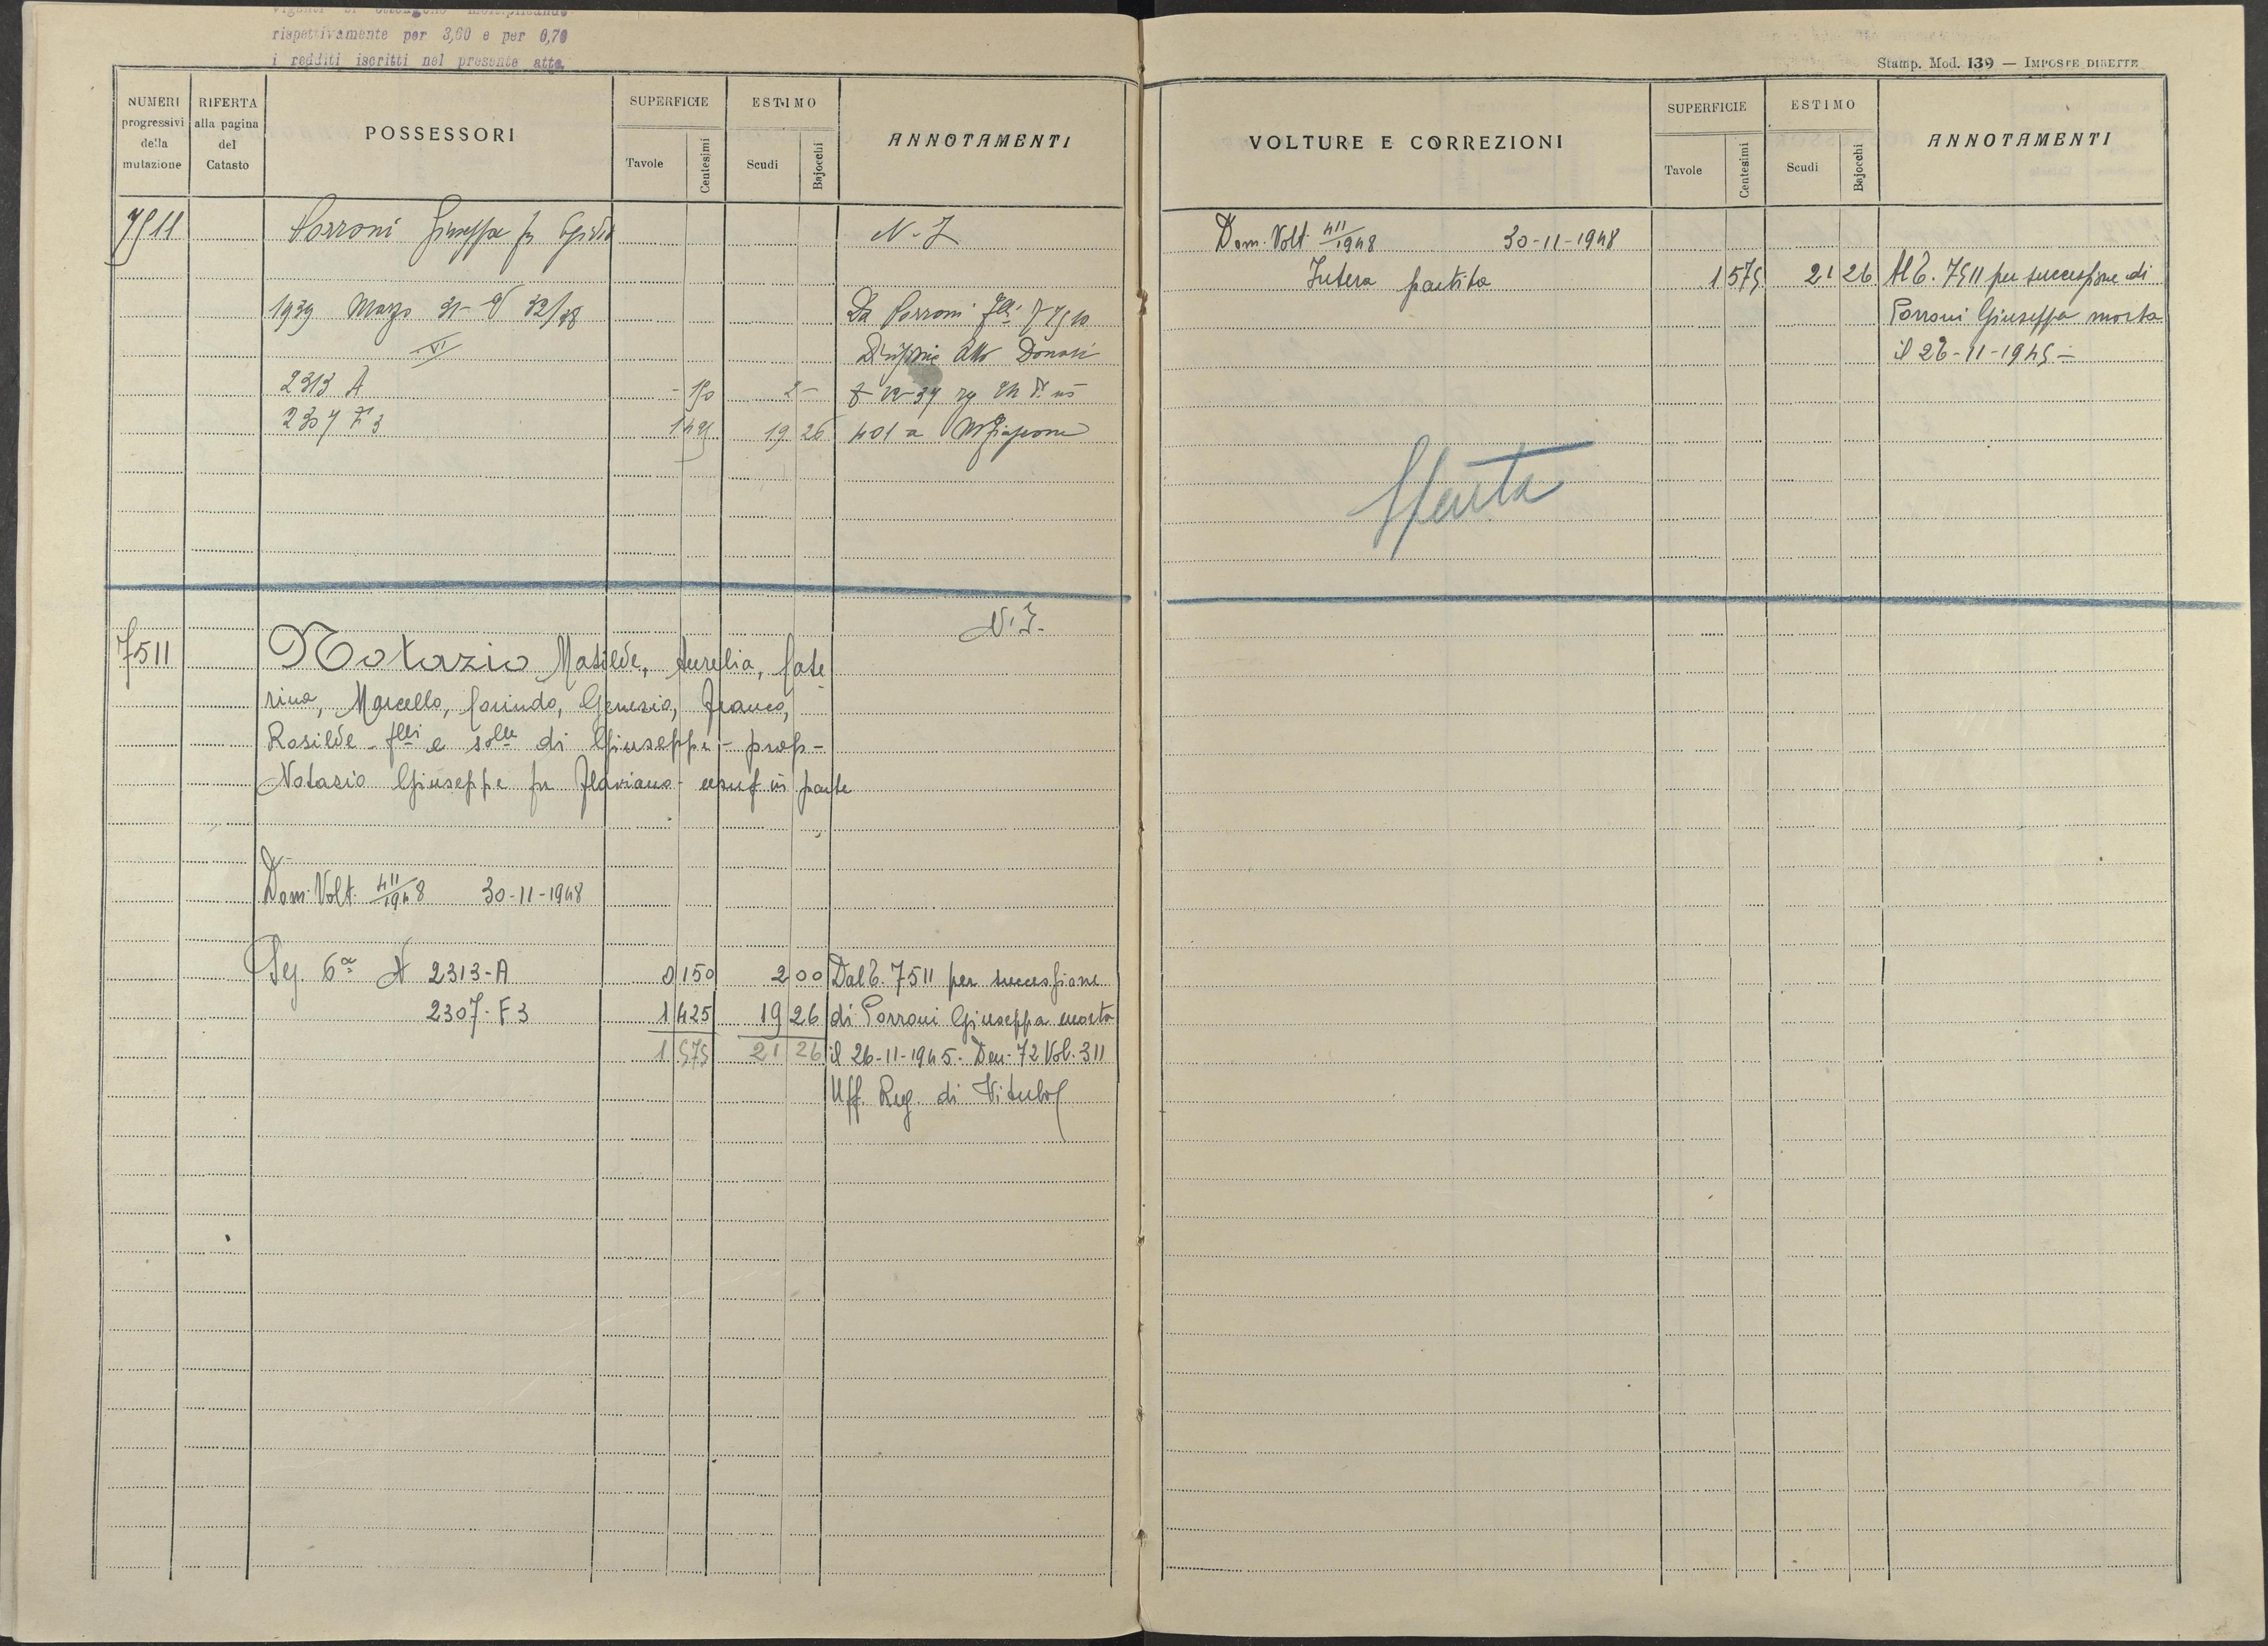 rispettivamente per 3,60 e per 0,70
i redditi iscritti nel presente atto.
NUMERI progressivi della mutazione
RIFERTA alla pagina del Catasto
POSSESSORI
SUPERFICIE
Tavole
Centesimi
ESTIMO
Scudi
Bajocchi
ANNOTAMENTI
7511
Porroni Giuseppa fu Egidio
N. I
1939 Marzo 31 - V 32/38
Da Porroni flli 7510
Divisione atto Donati
2313 A - 150 2 -
2307 F 3 1 425 19 26
401 a
7511
N. I.
Notazio Matilde, Aurelia, Cate
rina, Marcello, Corindo, Genesio, Franco,
Rosilde flli e slle di Giuseppe - prop -
Notazio Giuseppe fu Flaviano - usuf in parte
Dom. Volt. 411/1948 30-11-1948
Sez. 6a N 2313-A 0 150 2 00 Dal C. 7511 per successione
2307-F3 1 425 19 26 di Porroni Giuseppa morta
1 575 21 26 il 26-11-1945. Den. 72 Vol. 311
Uff. Reg. di
Stamp. Mod. 139 — IMPOSTE DIRETTE
VOLTURE E CORREZIONI
SUPERFICIE
Tavole
Centesimi
ESTIMO
Scudi
Bajocchi
ANNOTAMENTI
Dom. Volt. 411/1948 30-11-1948
Intera partita 1 575 21 26 Al C. 7511 per successione di
Porroni Giuseppa morta
il 26-11-1945 -
Spenta